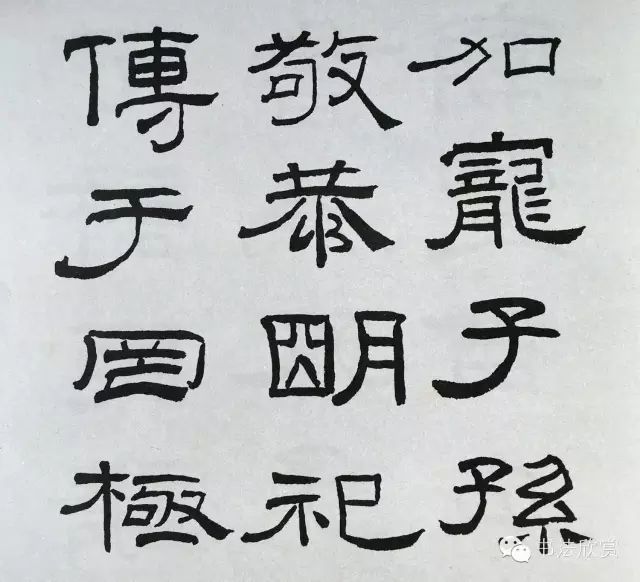 加寵子孫
敬恭明祀
傳于罔極
书法欣赏